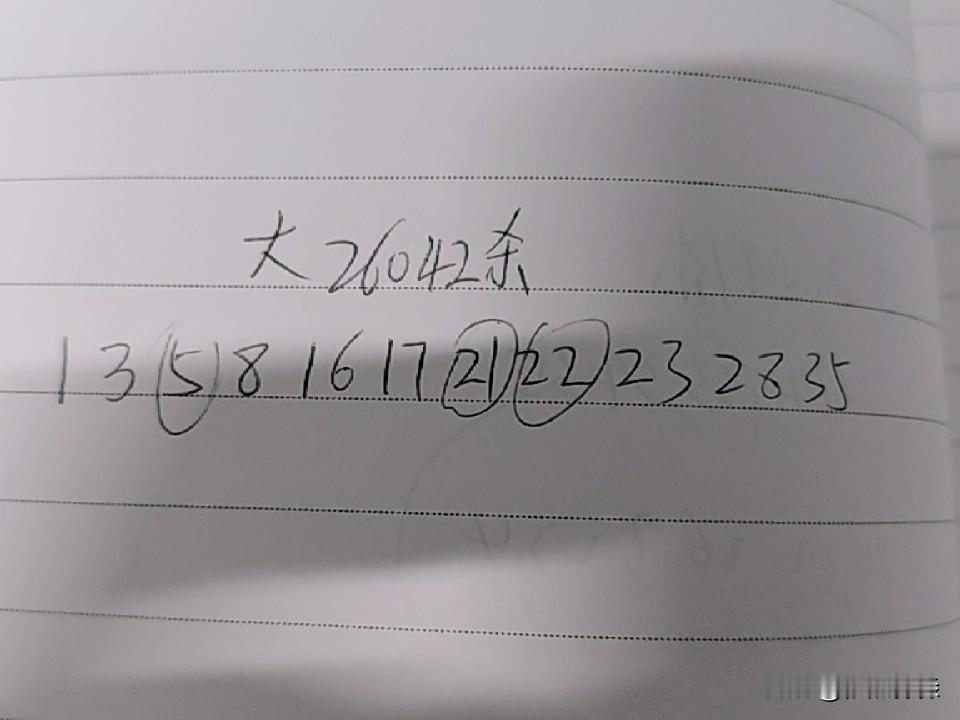 大26042杀
1 3 5 8 16 17 21 22 23 28 35